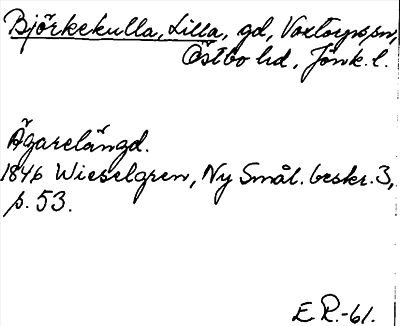 Björkekulla, Lilla, gd, Voxtorps sn,
Östbo hd, Jönk. l.
Ägarelängd.
1846 Wieselgren, Ny Smål. beskr. 3,
s. 53.
E R.-61.